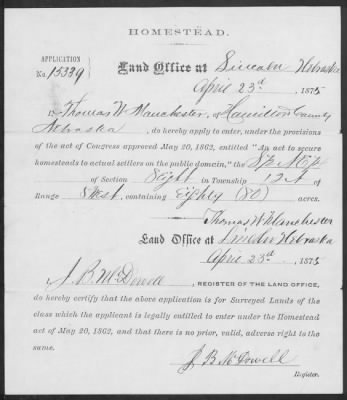 HOMESTEAD.
APPLICATION
No. 15339
Land Office at Lincoln Nebraska
April 23d, 1875
I, Thomas W. Manchester, of Hamilton County
Nebraska, do hereby apply to enter, under the provisions
of the act of Congress approved May 20, 1862, entitled "An act to secure
homesteads to actual settlers on the public domain," the
of Section Eight, in Township 12 N of
Range 8 West, containing Eighty (80) acres.
Thomas W. Manchester
Land Office at Lincoln Nebraska
April 23d, 1875
J. B. McDowell, REGISTER OF THE LAND OFFICE,
do hereby certify that the above application is for Surveyed Lands of the
class which the applicant is legally entitled to enter under the Homestead
act of May 20, 1862, and that there is no prior, valid, adverse right to the
same.
J. B. McDowell
Register.